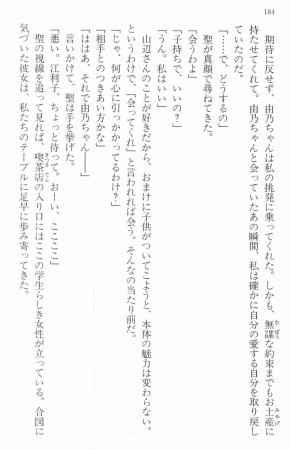 184
期待に反せず、由乃ちゃんは私の挑発に乗ってくれた。しかも、無謀な約束までもお土産に
持たせてくれて。由乃ちゃんと会っていたあの瞬間、私は確かに自分の愛する自分を取り戻し
ていたのだ。
「……で、どうするの」
聖が真顔で尋ねてきた。
「会うわよ」
「子持ちで、いいの?」
「うん。私はいい」
山辺さんのことが好きだから、おまけに子供がついてこようと、本体の魅力は変わらない。
というわけで、「会ってくれ」と言われれば会う。そんなの当たり前だ。
「じゃ、何が心に引っかかってるわけ?」
「相手とのつきあい方かな」
「ははあ、それで由乃ちゃん――」
言いかけて、聖は手を挙げた。
「悪い。江利子、ちょっと待って。おーい、ここここ」
聖の視線を追って見れば、喫茶店の入り口にはここの学生らしき女性が立っている。合図に
気づいた彼女は、私たちのテーブルに足早に歩み寄ってきた。